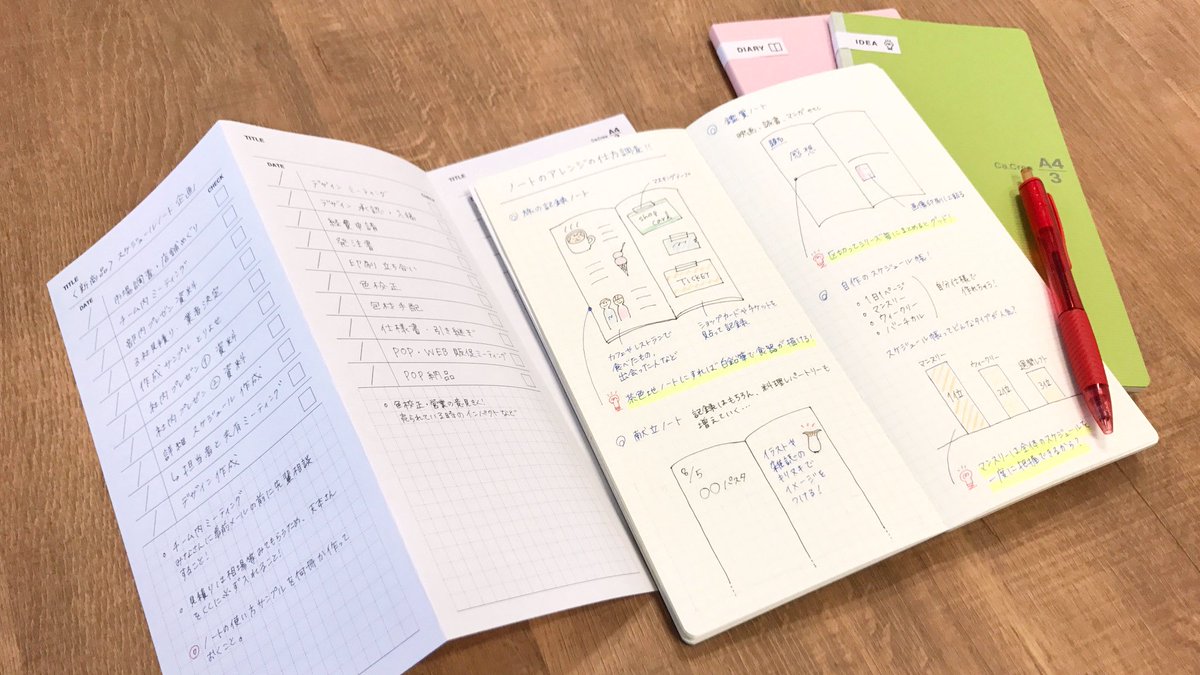 TITLE
〈新商品〉スケジュールノート企画
DATE
CHECK
市場調査・店舗めぐり
チーム内ミーティング
部内プレゼン資料
3社見積り 業者決定
作成サンプル とりよせ
社内プレゼン① 資料
社内プレゼン② 資料
詳細 スケジュール 作成
↳ 担当者と共有ミーティング
デザイン作成
チーム内ミーティング
みなさんに事前メールの前に先輩相談
すること!
見積りは相場等みてもらうため、
をCCに必ず入れること!
ノートの使い方サンプルを何冊か作って
おくこと。
TITLE
DATE
CHECK
デザイン ミーティング
デザイン 承認・入稿
経費申請
発注書
印刷立ち合い
色校正
色校手配
仕様書・引き継ぎ
POP・WEB 販促ミーティング
POP納品
色校正・営業の意見きく!
売られている時のインパクトなど
TITLE
Ca.Crea A4
ノートのアレンジの仕方調査!!
旅の記録ノート
マスキングテープ
Shop
card
TICKET
カフェやレストランで
食べたもの、
出会った人など
ショップカードやチケットを
貼って記録
茶色地ノートにすれば白鉛筆で食器が描ける!
献立ノート 記録はもちろん、料理レパートリーも
増えていく…
8/5
〇〇パスタ
イラストや
雑誌の
キリヌキで
イメージを
つける!
鑑賞ノート
映画、読書、マンガ etc.
題名
感想
画像印刷して貼る
区切ってシリーズ毎にまとめるとグッド!
自作のスケジュール帳!
1日1ページ
マンスリー
ウィークリー
バーチカル
自分仕様で
作れちゃう!
スケジュール帳ってどんなタイプが人気?
マンスリー
ウィークリー
週間レフト
1位
2位
3位
マンスリーは全体のスケジュールを
一度に把握できるから?
DIARY
IDEA
Ca.Crea A4
3